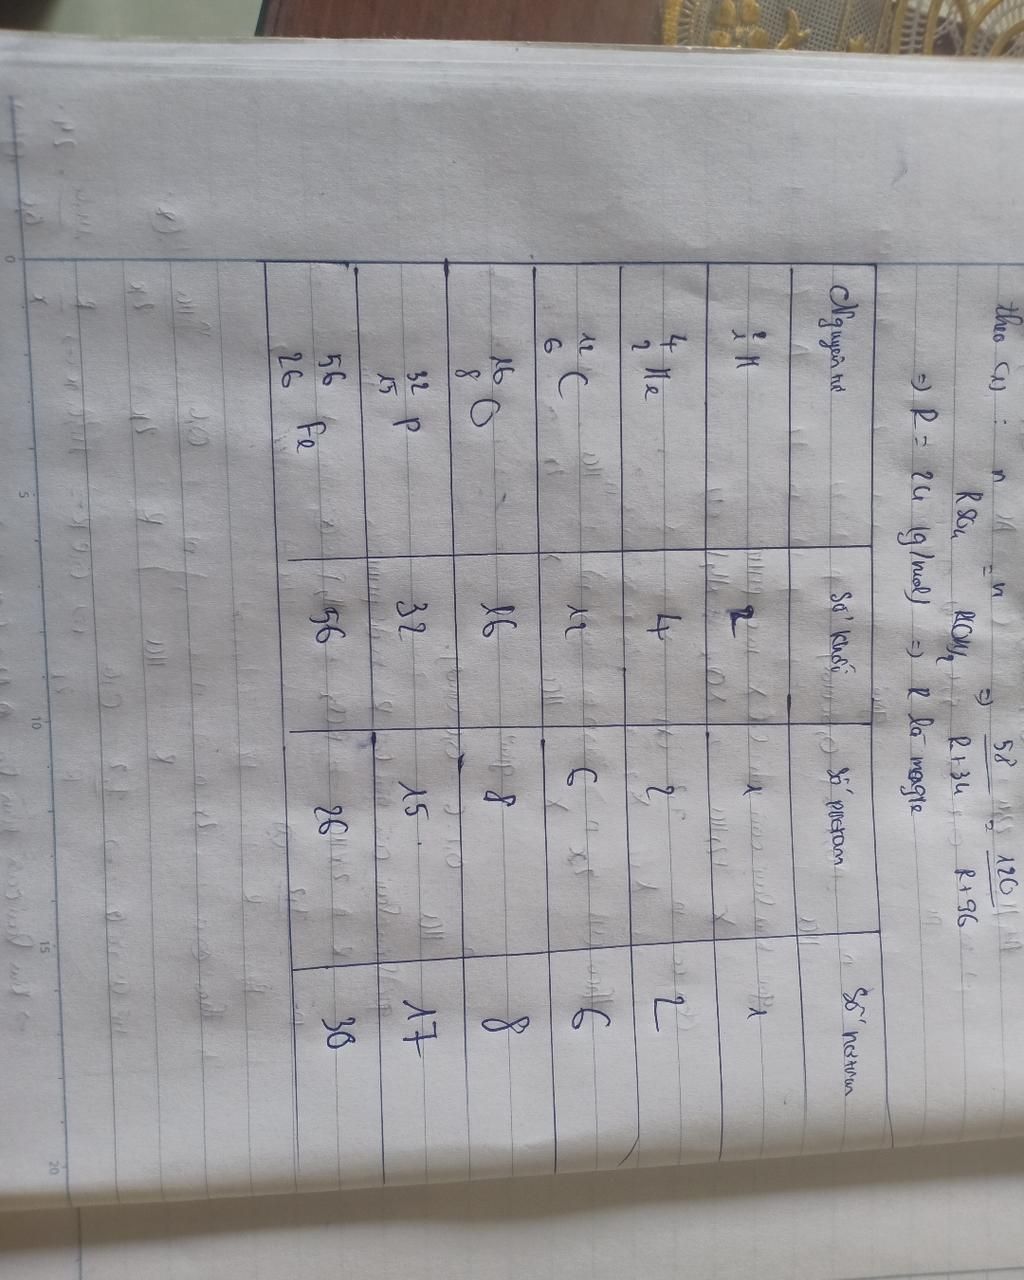 theo (1) : n RSO4 = n R(OH)2 => 58 / R+34 = 120 / R+96
=> R = 24 (g/mol) => R là magie
Nguyên tử Số khối Số proton Số nơtron
2 1 H 2 1 1
4 2 He 4 2 2
12 6 C 12 6 6
16 8 O 16 8 8
32 15 P 32 15 17
56 26 Fe 56 26 30
0
5
10
15
20